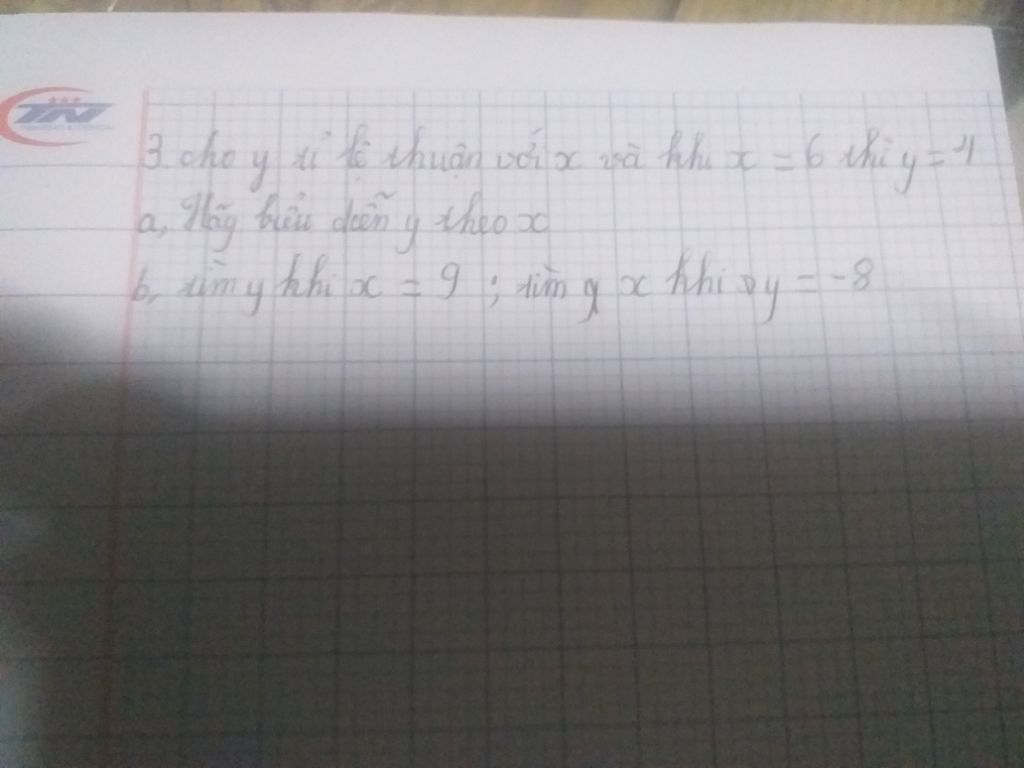 TN
3 cho y tỉ lệ thuận với x và khi x = 6 thì y = 4
a, Hãy biểu diễn y theo x
b, tìm y khi x = 9 ; tìm x khi y = -8